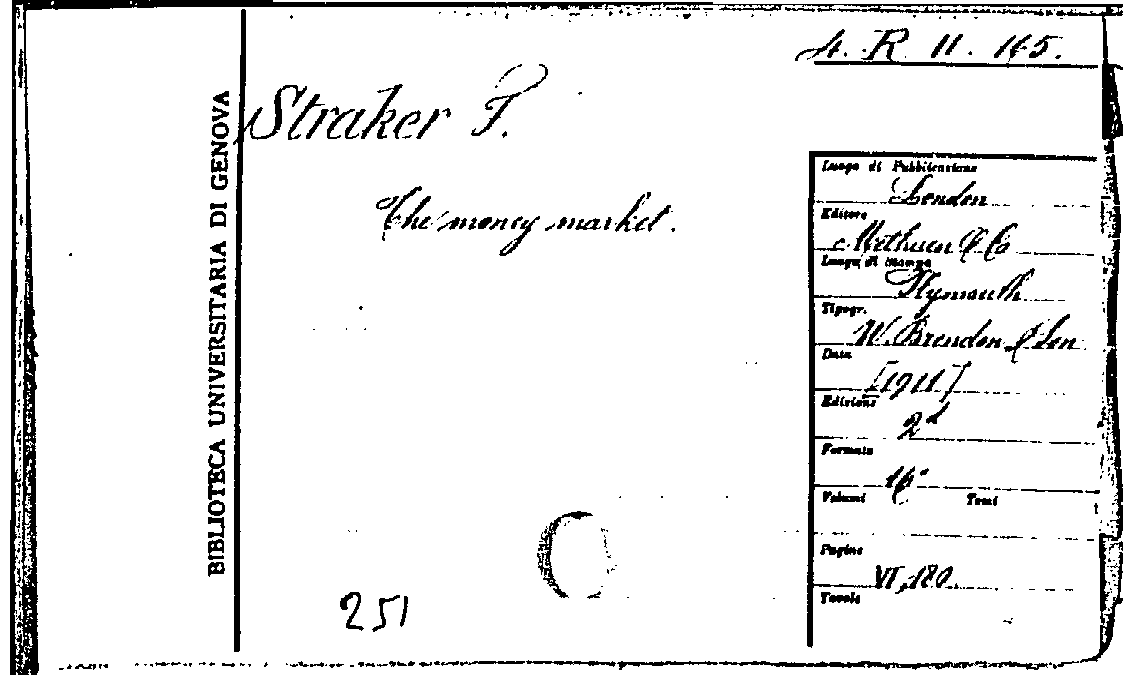 4. R. 11. 145.
BIBLIOTECA UNIVERSITARIA DI GENOVA
Straker F.
The money market.
Luogo di Pubblicazione
London
Editore
Methuen & Co
Luogo di stampa
Plymouth
Tipogr.
W. Brendon & Son
Data
[1911]
Edizione
2d
Formato
16°
Volumi Tomi
Pagine
VI, 180.
Tavole
251